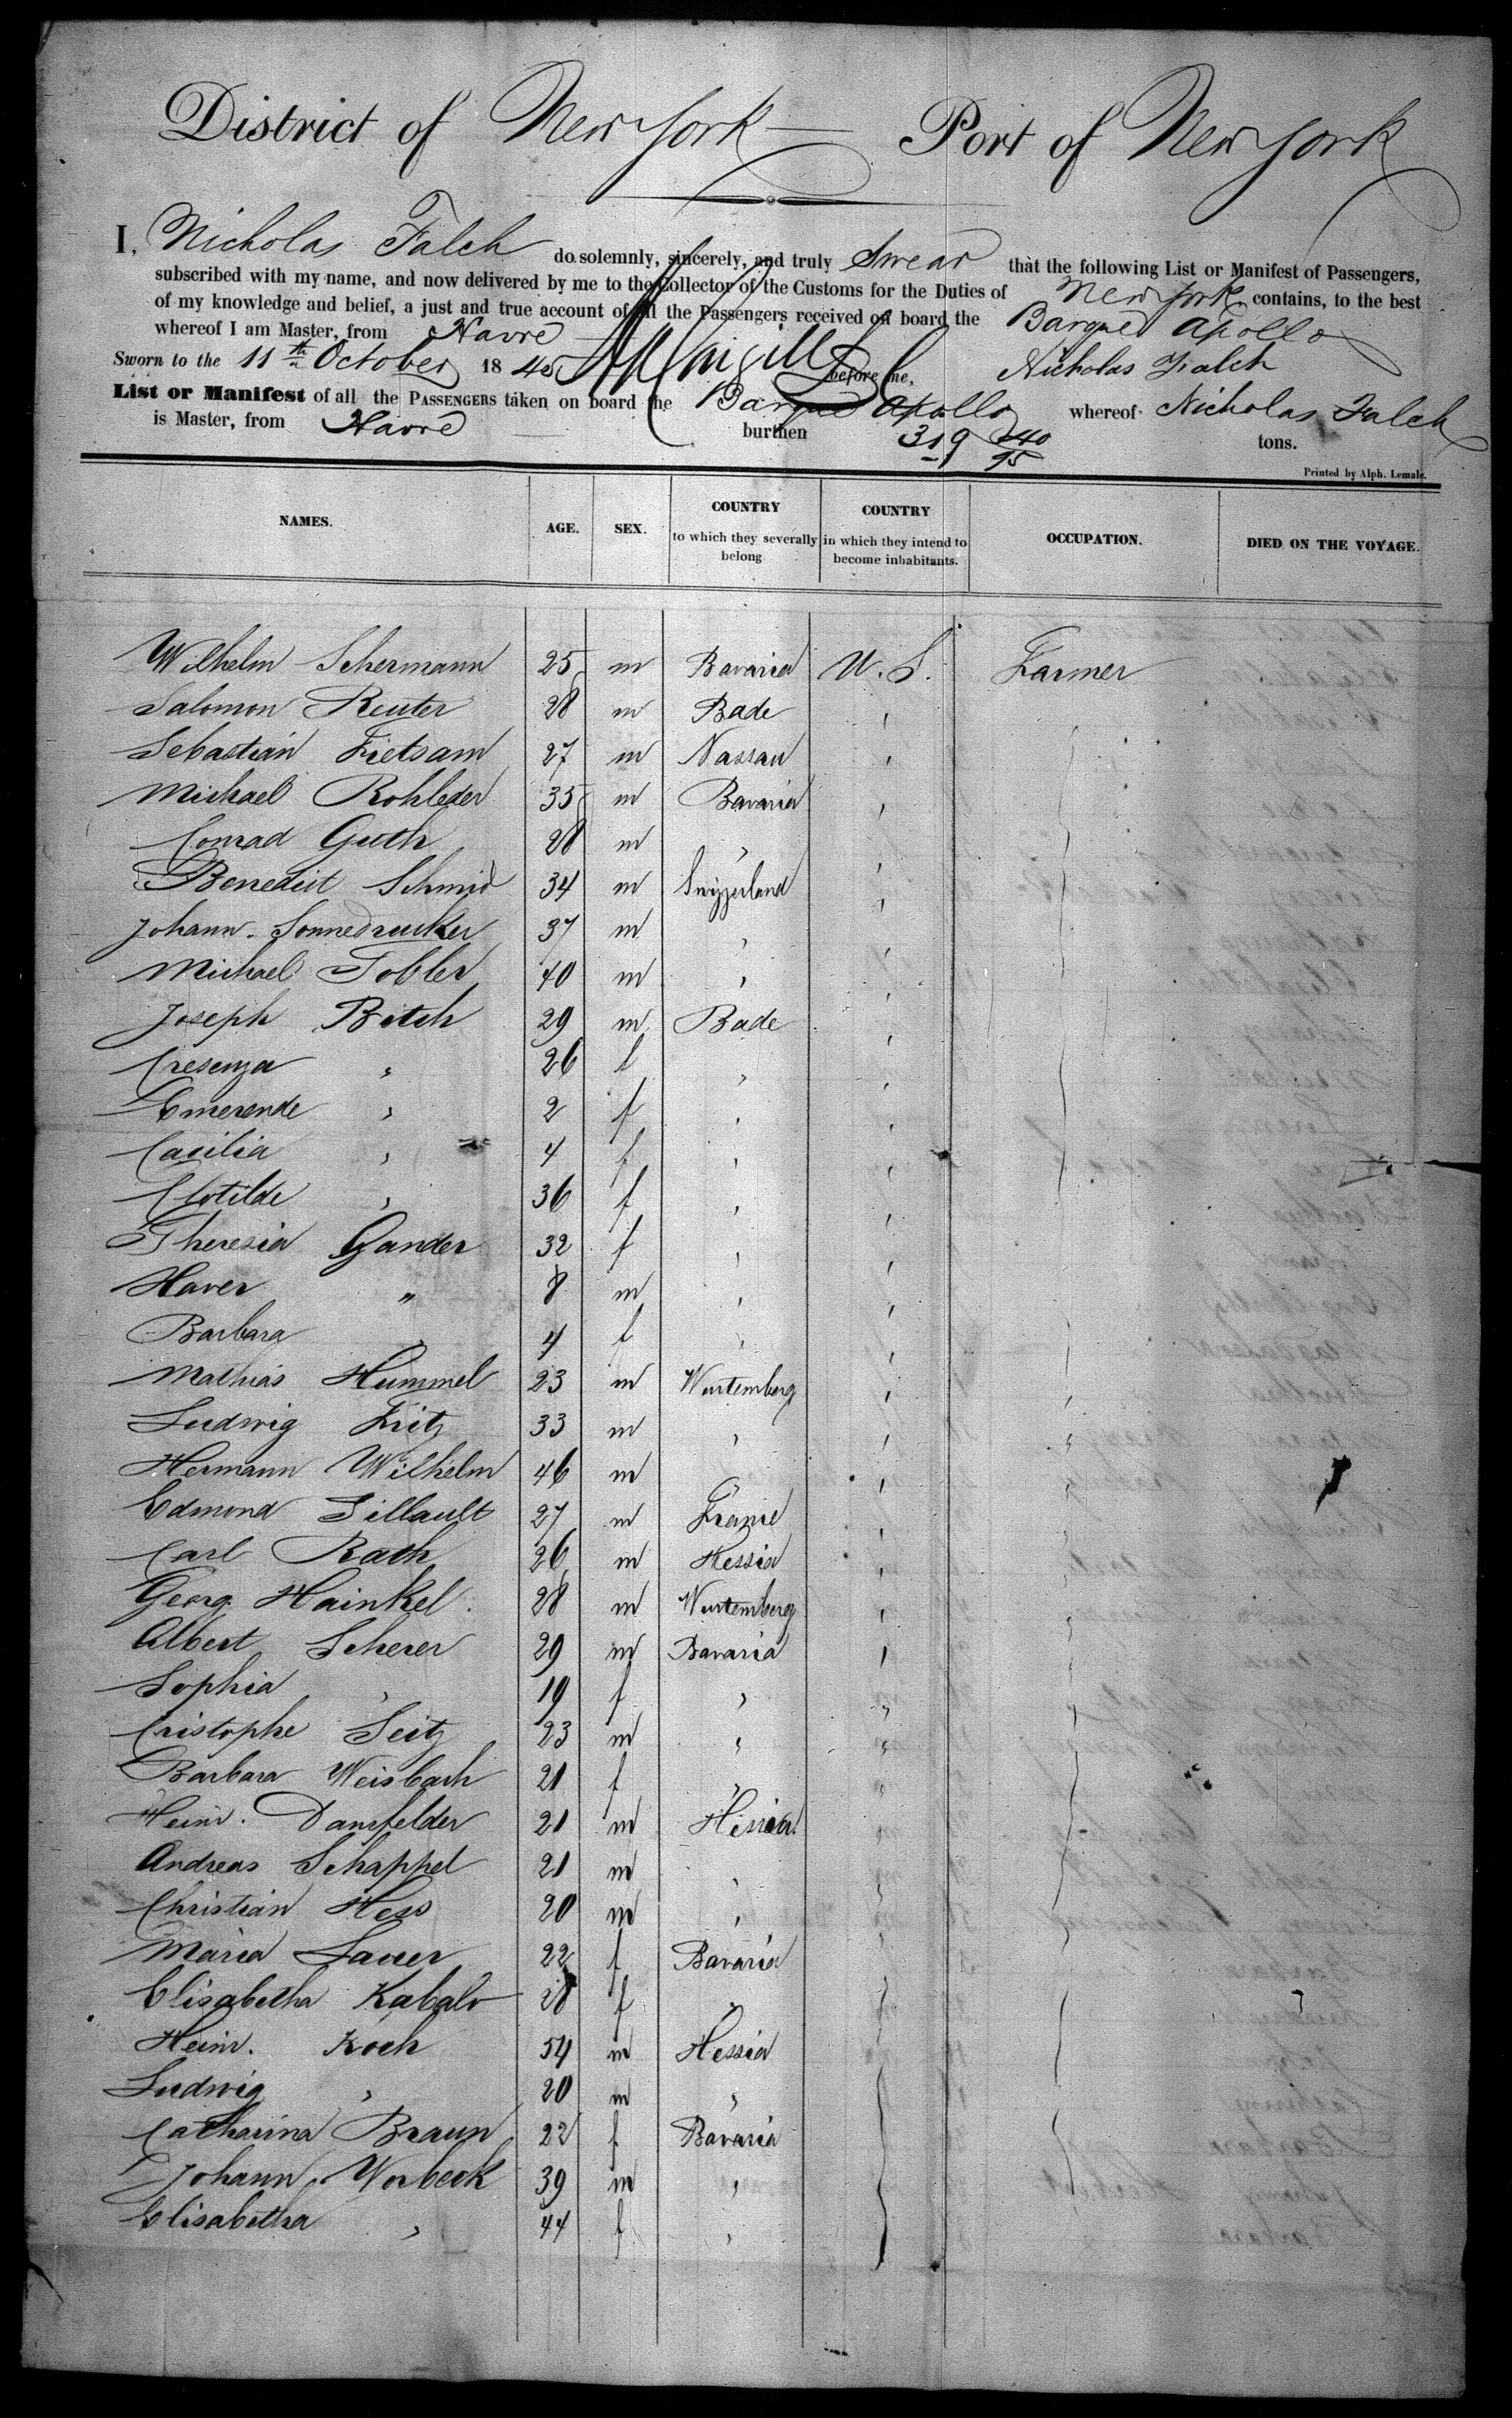 District of New York Port of New York
I, Nicholas Falch do solemnly, sincerely, and truly Swear that the following List or Manifest of Passengers,
subscribed with my name, and now delivered by me to the Collector of the Customs for the Duties of New York contains, to the best
of my knowledge and belief, a just and true account of all the Passengers received on board the Barque Apollo
whereof I am Master, from Havre
Sworn to the 11th October 1845 before me, Nicholas Falch
List or Manifest of all the PASSENGERS taken on board the Barque Apollo whereof Nicholas Falch
is Master, from Havre burthen 319 40/95 tons.
Printed by Alph. Lemale.
NAMES. AGE. SEX. COUNTRY to which they severally belong COUNTRY in which they intend to become inhabitants. OCCUPATION. DIED ON THE VOYAGE.
Wilhelm Schermann 25 m Bavaria U.S. Farmer
Salomon Reuter 28 m Bade
Sebastian Fietsam 27 m Nassau
Michael Rohleder 35 m Bavaria
Conrad Guth 28 m "
Benedict Schmid 34 m Swizzerland
Johann Sonnedrucker 37 m "
Michael Tobler 40 m "
Joseph Bitch 29 m Bade
Cresenza " 26 f "
Emerende " 2 f "
Cacilia " 4 f "
Clotilde " 36 f "
Theresia Gander 32 f "
Xaver " 8 m "
Barbara " 4 f "
Mathias Hummel 23 m Wurtemberg
Ludwig Fritz 33 m "
Hermann Wilhelm 46 m "
Edmond Sillault 27 m France
Carl Rath 26 m Hessia
Georg Hainkel 28 m Wurtemberg
Albert Scherer 29 m Bavaria
Sophia " 19 f "
Cristophe Seitz 23 m "
Barbara Weisbach 21 f "
Heinr. Damfelder 21 m Hessia
Andreas Schappel 21 m "
Christian Hess 20 m "
Maria Lauer 22 f Bavaria
Elisabetha Kabalo 28 f "
Heinr. Koch 54 m Hessia
Ludwig " 20 m "
Catharina Braun 22 f Bavaria
Johann Worbeck 39 m "
Elisabetha " 44 f "